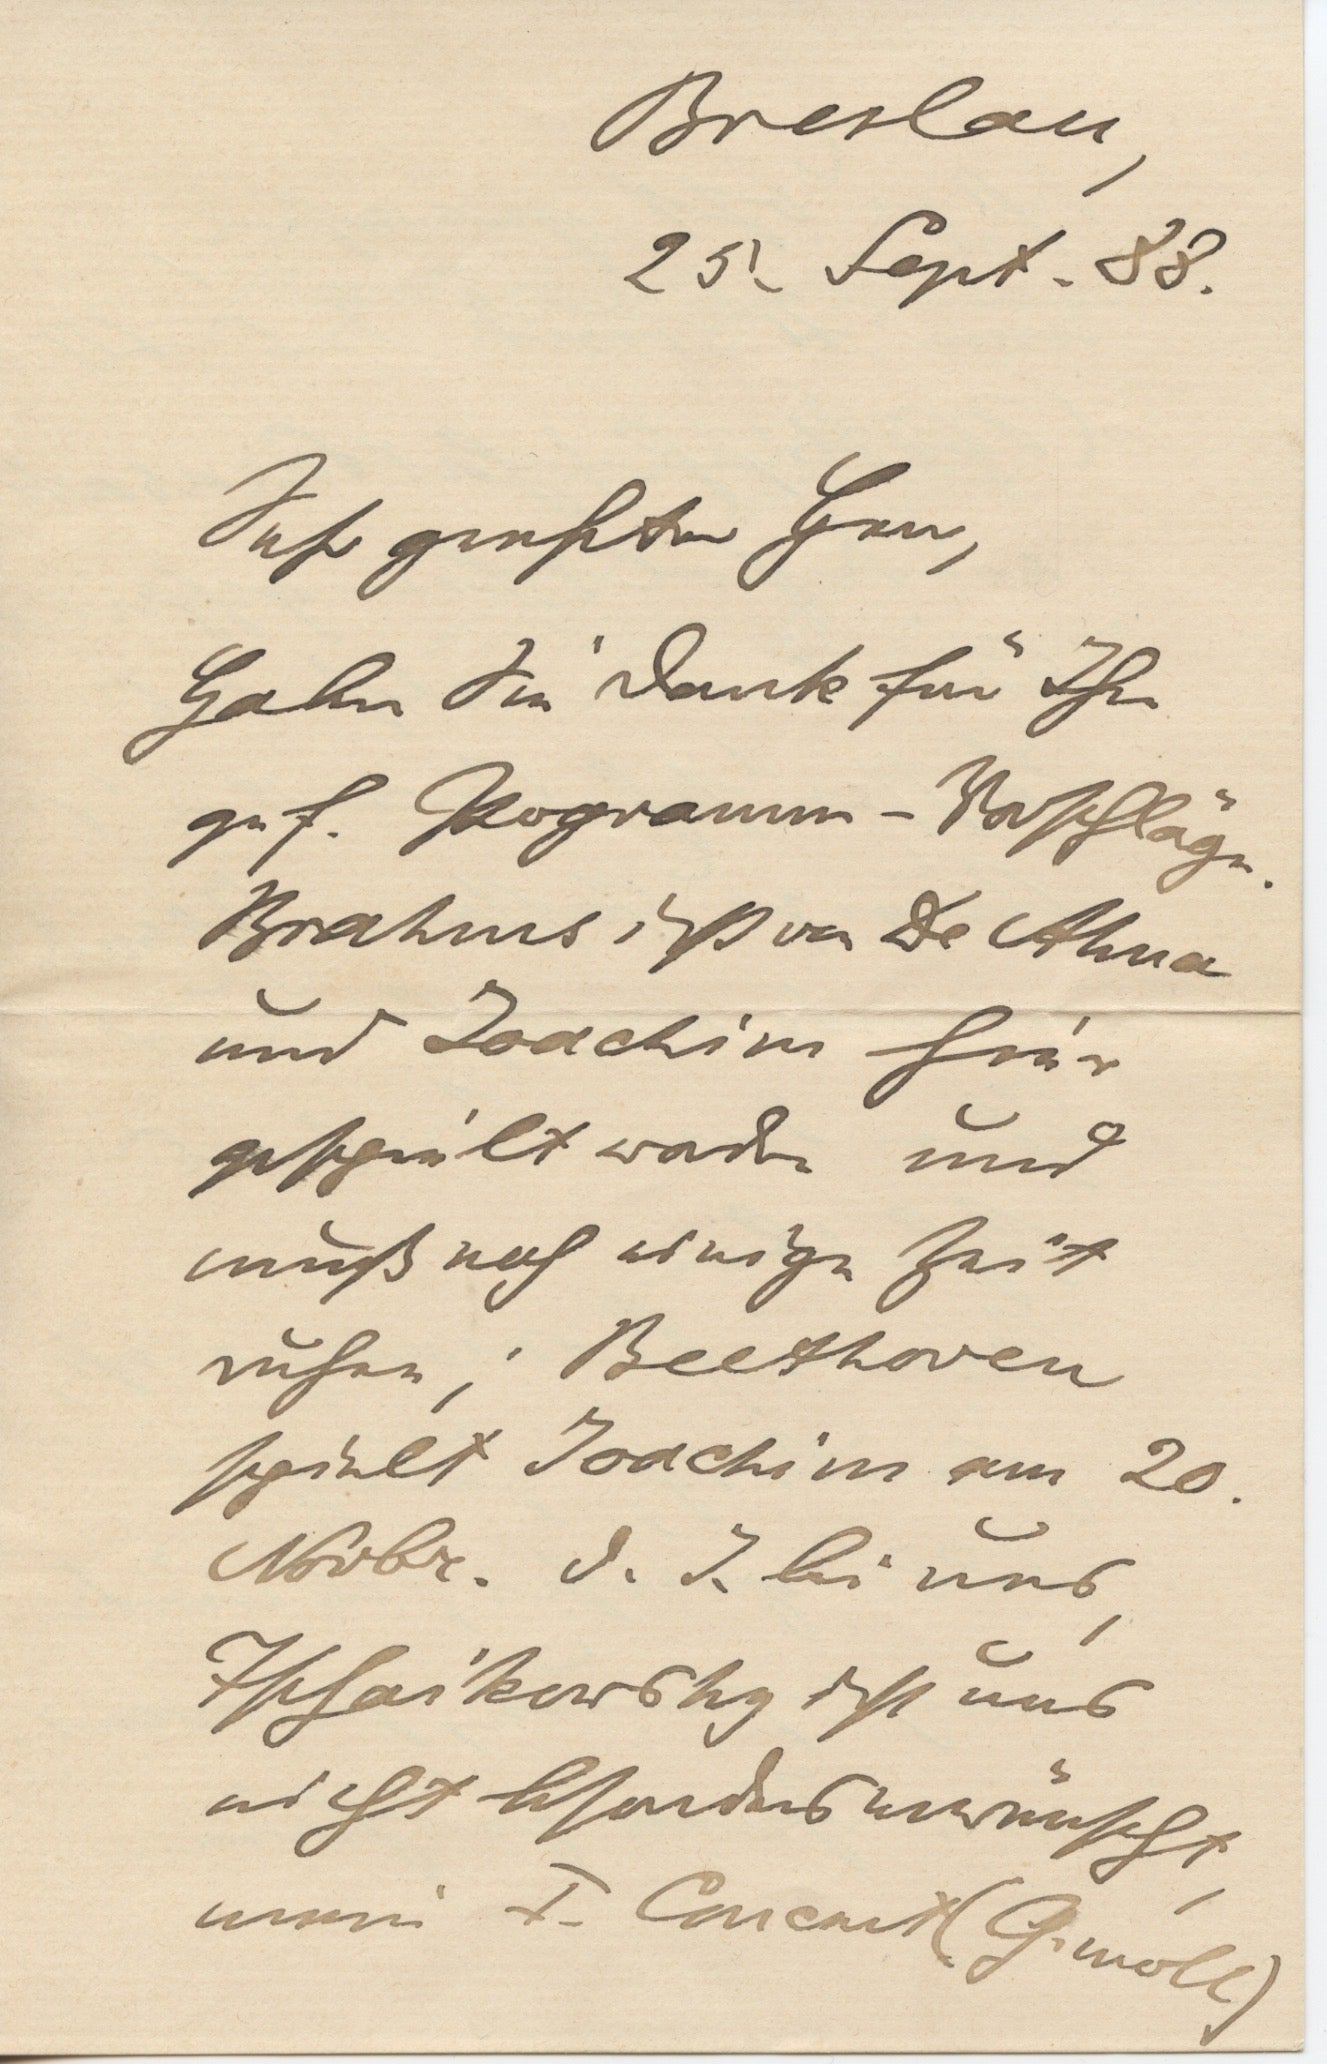 Breslau,
25. Sept. 88.
Sehr geehrter Herr,
Haben Sie Dank für Ihre
gef. Programm-Vorschläge.
Brahms ist von De Ahna
und Joachim hier
gespielt worden und
muß noch einige Zeit
ruhen; Beethoven
spielt Joachim am 20.
Novbr. d. J. bei uns,
Tschaikowsky ist uns
nicht besonders erwünscht,
mein I. Concert (G moll)